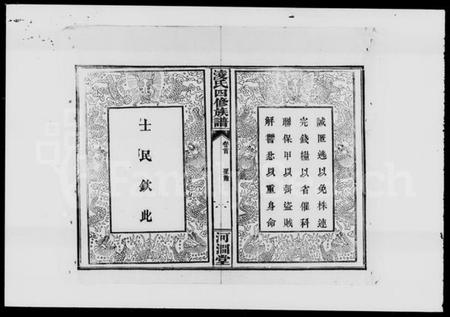 誡匿逃以免株連
完錢糧以省催科
聯保甲以弭盜賊
解讐忿以重身命
凌氏四修族譜
卷首
一
河澗堂
士民欽此